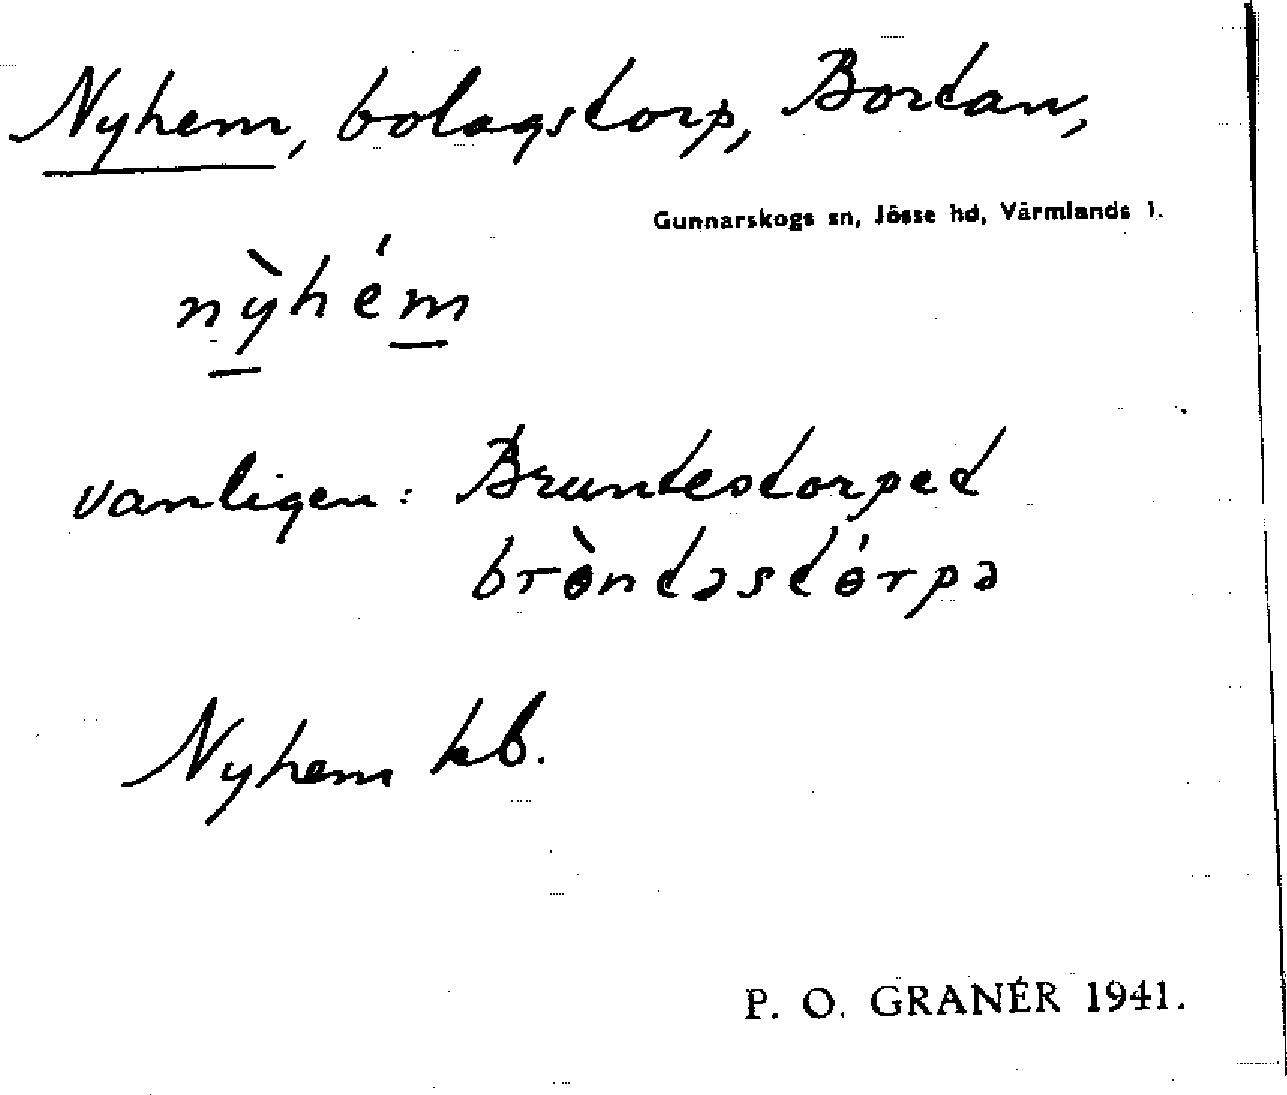 Nyhem, bolagstorp, Bortan,
Gunnarskogs sn, Jösse hd, Värmlands l.
nỳ̱hém̱
vanligen: Bruntestorpet
brɵ̀ntəstɵ́rpə
Nyhem kb.
P. O. GRANÉR 1941.